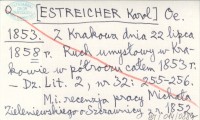 [ESTREICHER Karol] Oe.
1853. Z Krakowa dnia 22 lipca
1858 r. Ruch umysłowy w Kra-
kowie w półroczu całem 1853 r.
- Dz. Lit. 2, nr 32: 255-256.
M.i. recenzja pracy Michała
Zieleniewskiego o Szczawnicy z r. 1852